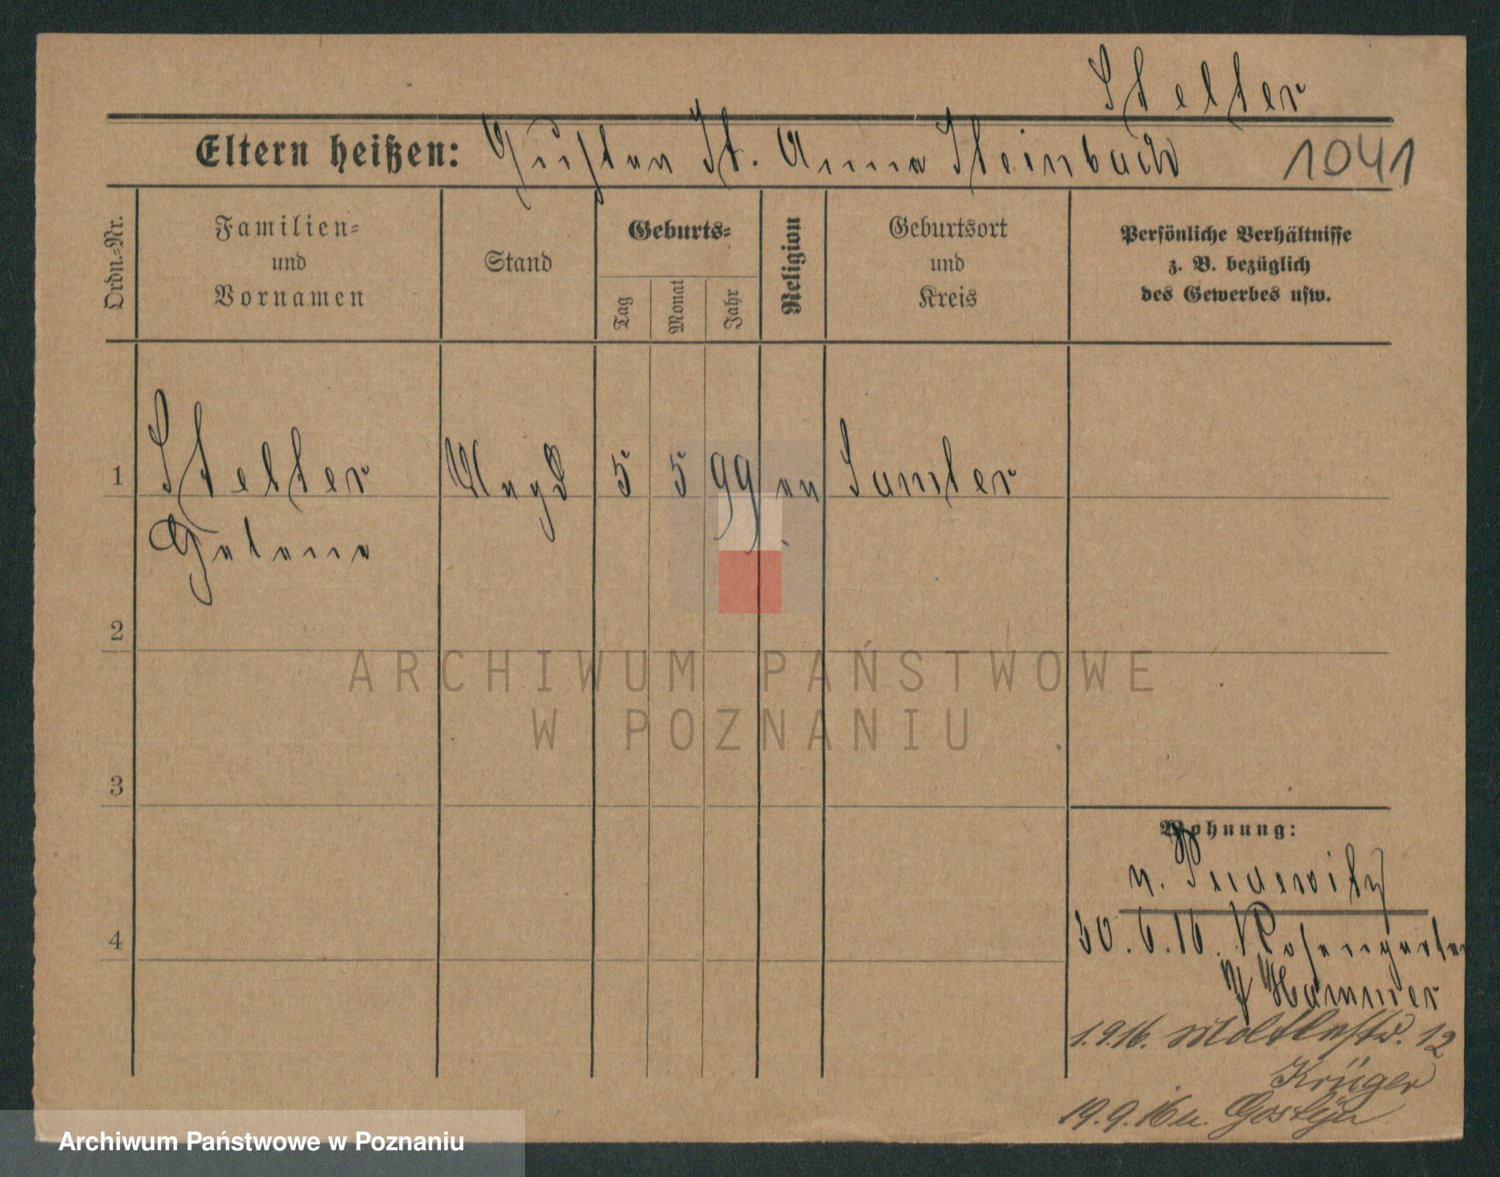 Stelter
Eltern heißen: Gustav St. Anna Steinbach 1041
Ordn.-Nr.
Familien-
und
Vornamen
Stand
Geburts-
Tag
Monat
Jahr
Religion
Geburtsort
und
Kreis
Persönliche Verhältnisse
z. B. bezüglich
des Gewerbes usw.
1 Stelter Magd 5 5 99 ev Samter
Helene
2
3
4
Wohnung:
n.
30.6.16. Rosengarten
b/ Hammer
1.9.16. Moltkestr. 12
Krüger
19.9.16 n. Gostyn
ARCHIWUM PAŃSTWOWE
W POZNANIU
Archiwum Państwowe w Poznaniu